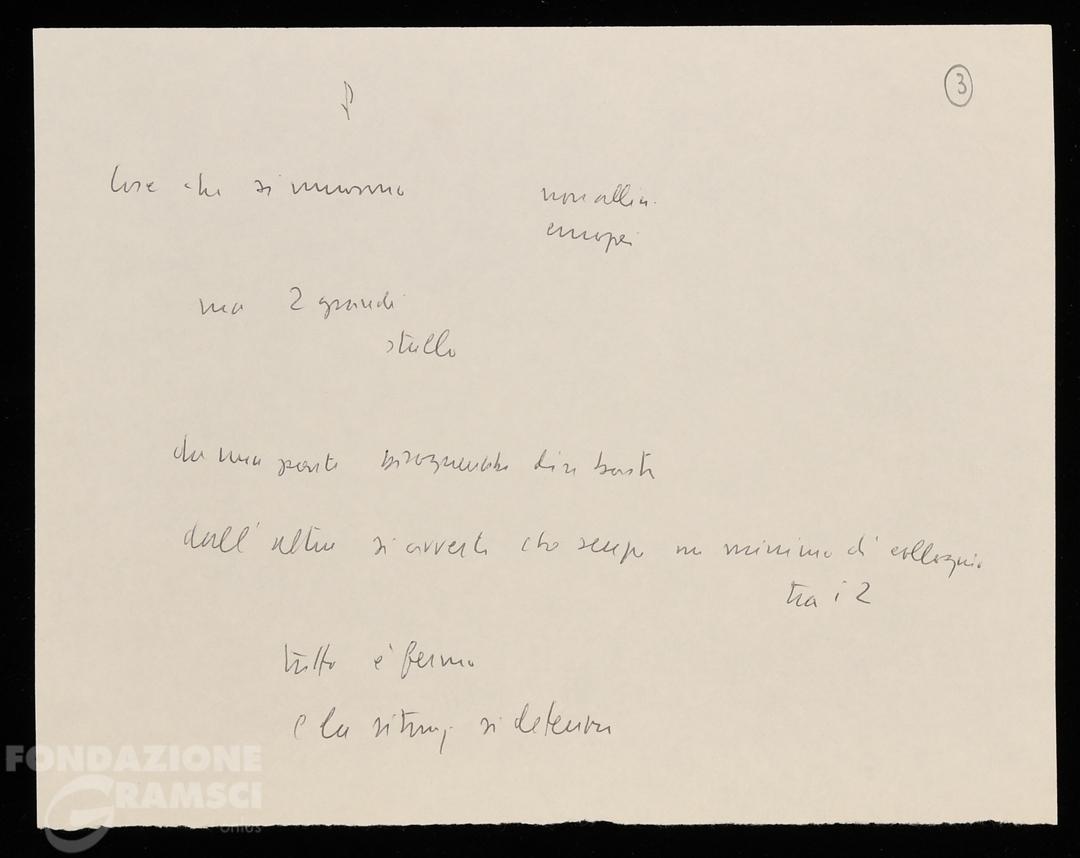 3
Cose che si muovono
non allin.
europei
ma 2 grandi
stallo
da una parte bisognerebbe dire basta
dall'altra si avverte che senza un minimo di colloquio
tra i 2
tutto è fermo
e la situaz. si deteriora
FONDAZIONE
GRAMSCI
onlus